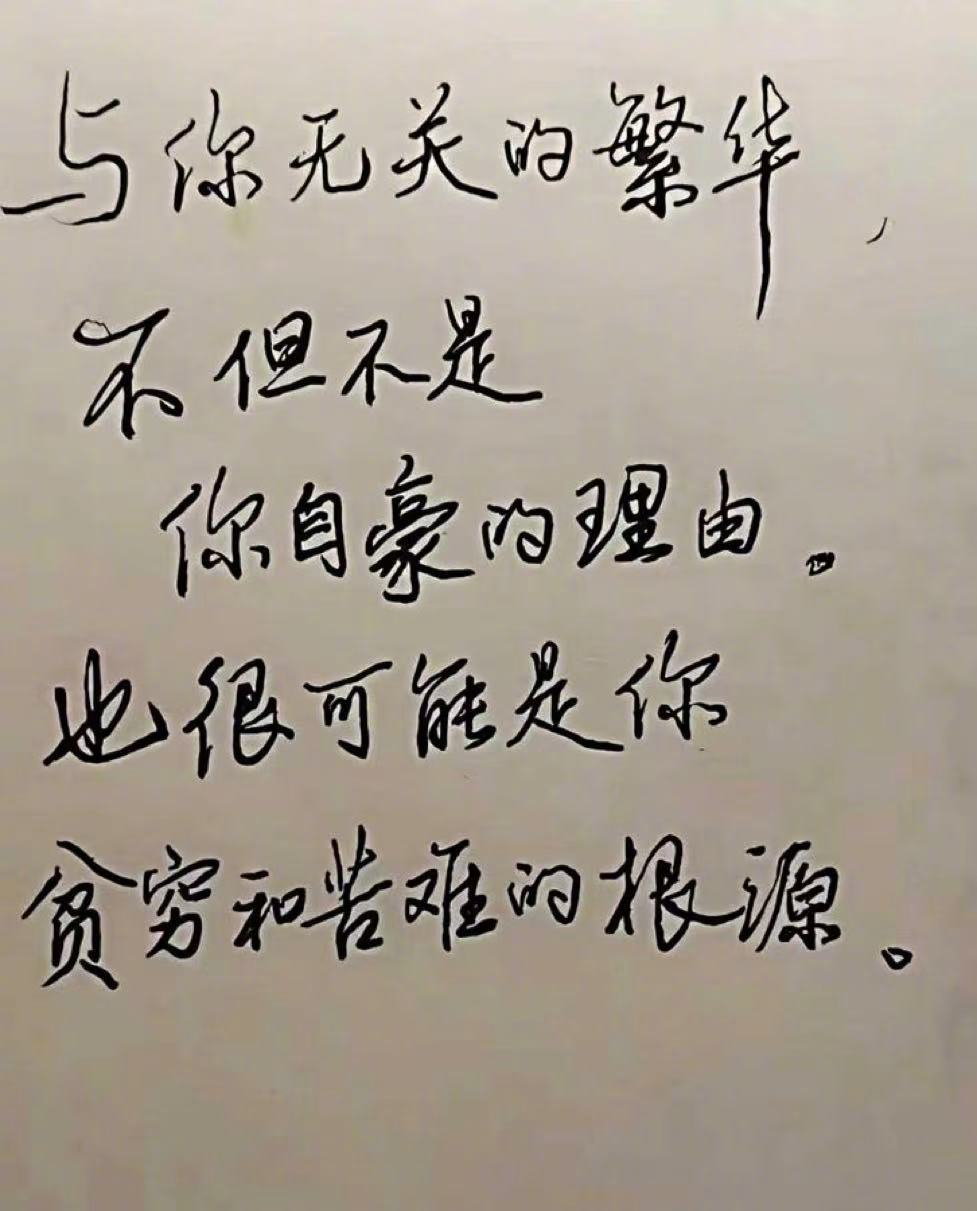 与你无关的繁华，
不但不是
你自豪的理由。
也很可能是你
贫穷和苦难的根源。